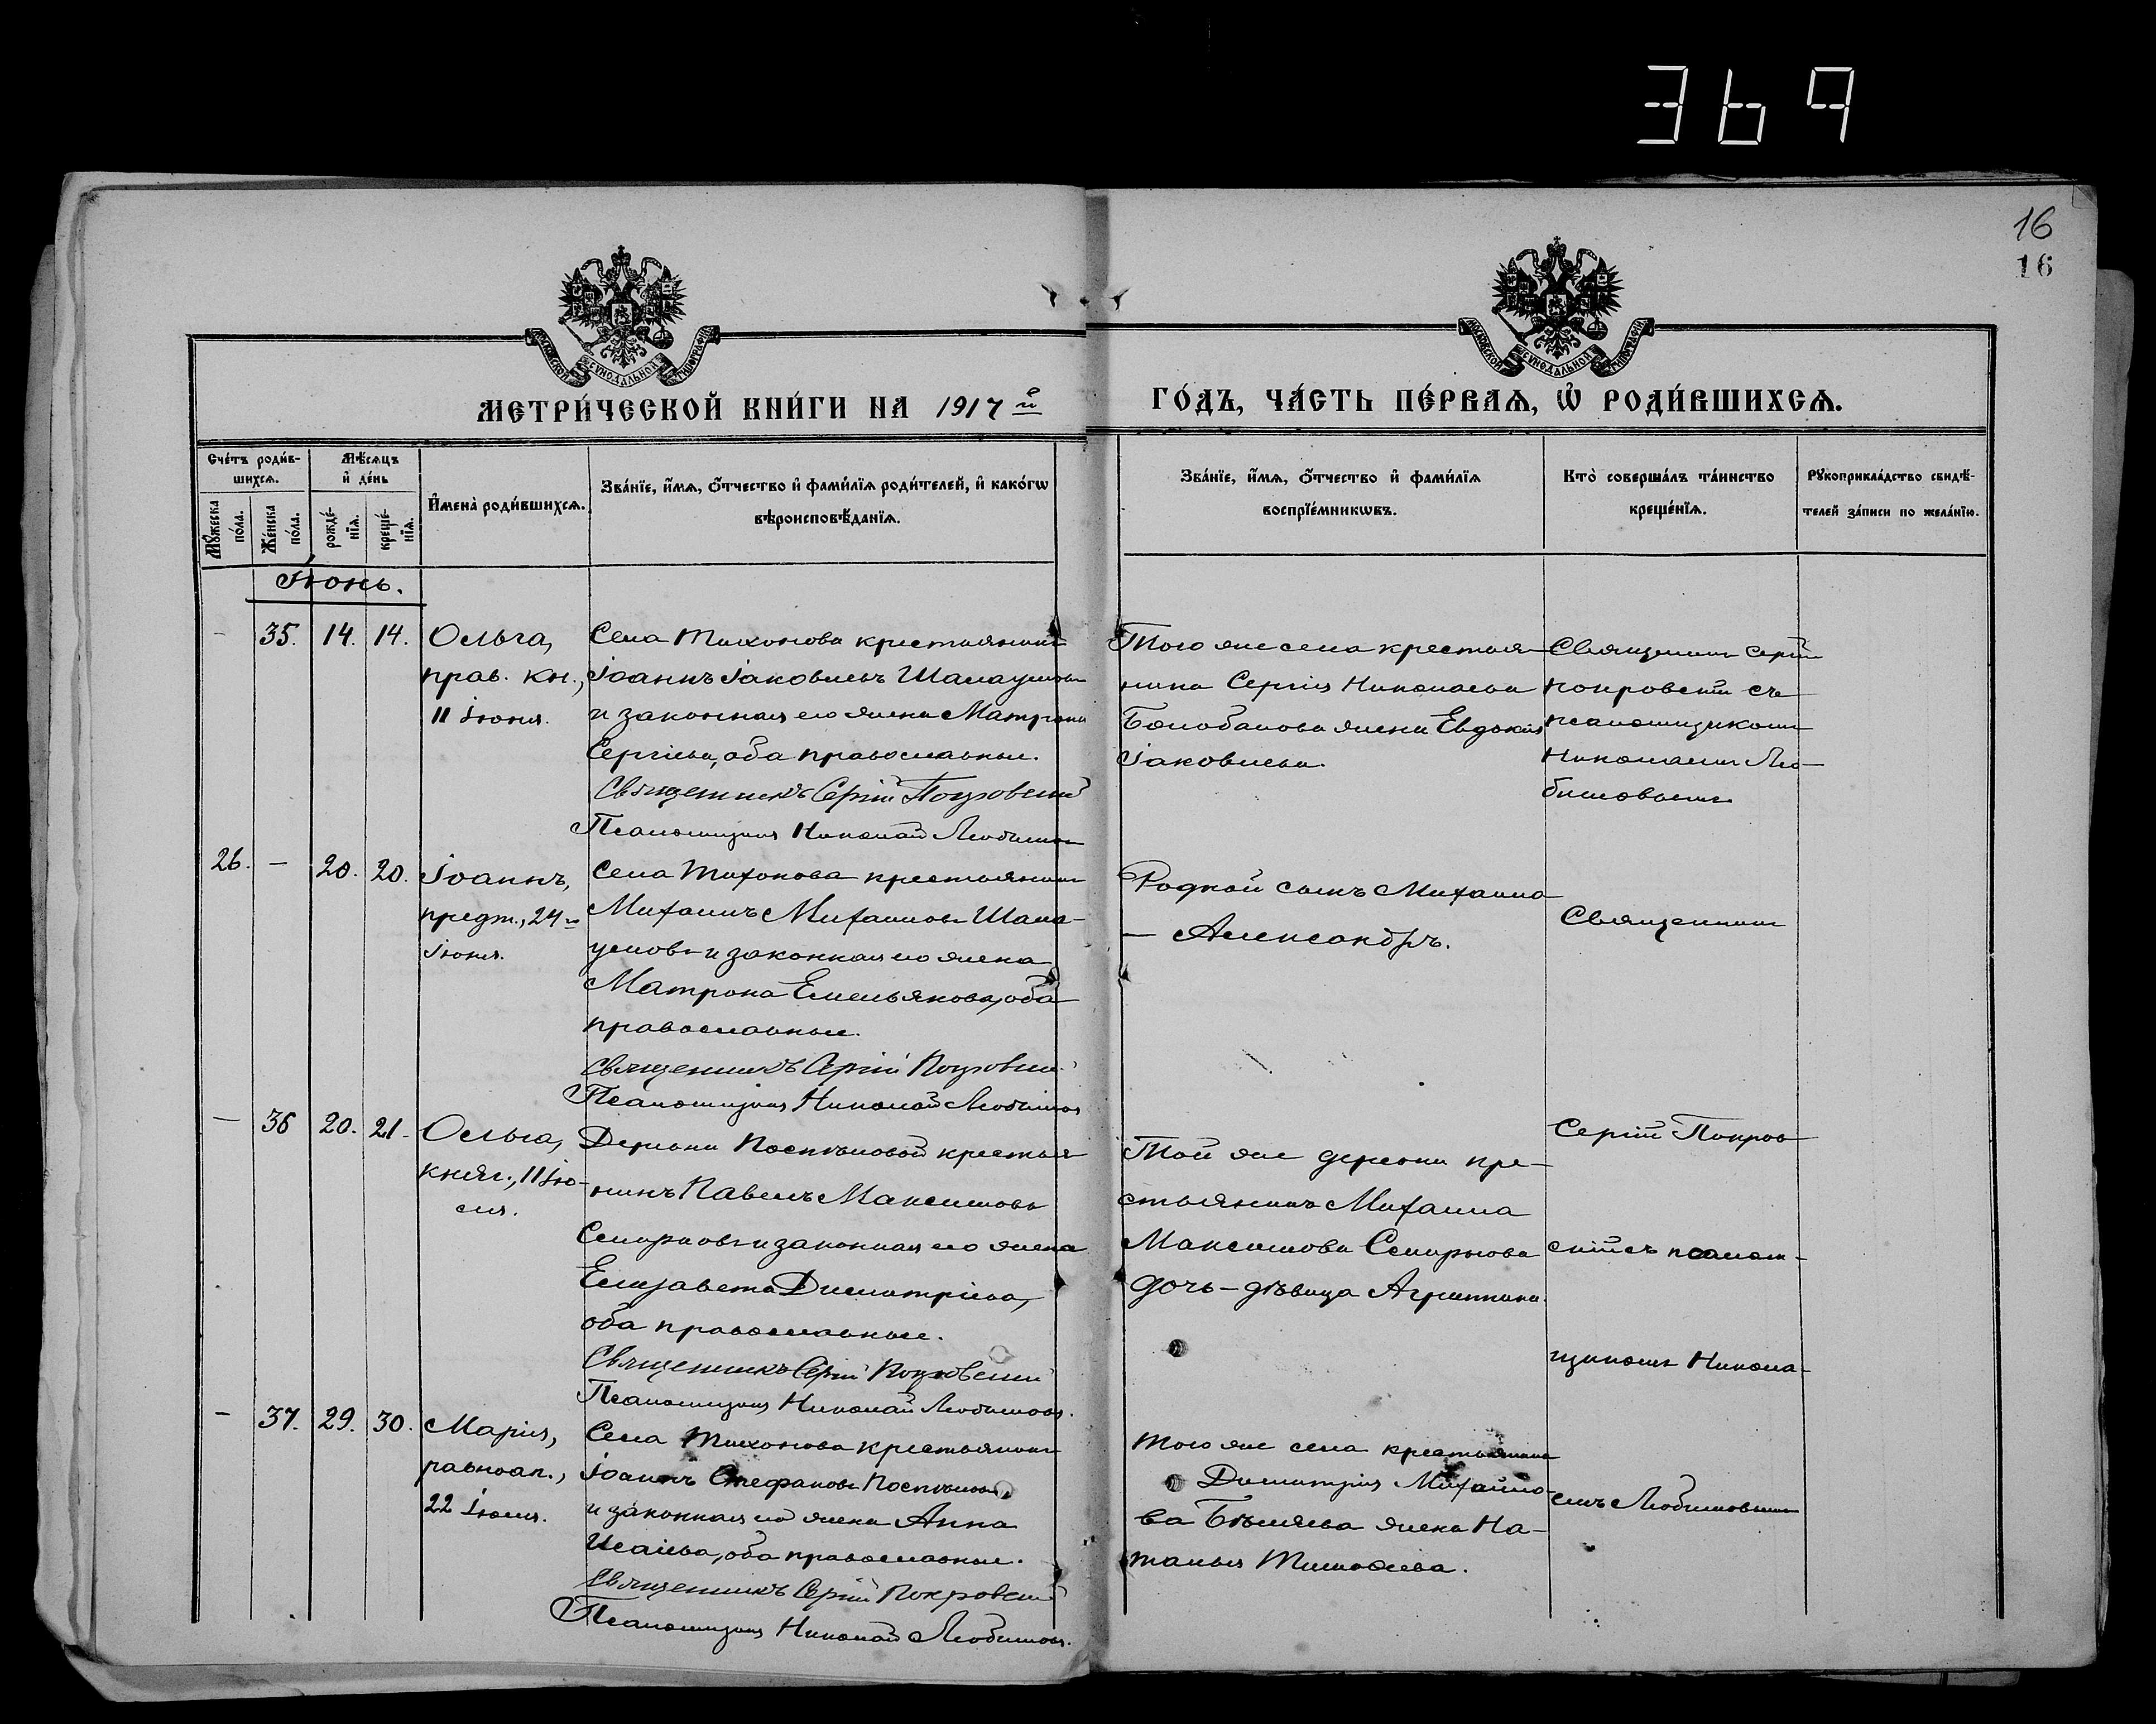 369
16
16
МОСКОВСКОЙ СѴНОДАЛЬНОЙ ТИПОГРАФІИ
МОСКОВСКОЙ СѴНОДАЛЬНОЙ ТИПОГРАФІИ
МЕТРИ́ЧЕСКОЙ КНИ́ГИ НА 1917 й ГО́ДЪ, ЧА́СТЬ ПЕ́РВАѦ, Ѡ҆ РОДИ́ВШИХСѦ.
Сче́тъ роди́в-
шихсѧ.
Мѣ́сѧцъ
и҆ де́нь
Мꙋ́жеска по́ла.
Же́нска по́ла.
рожде́-нїѧ.
креще́-нїѧ.
И҆мена̀ роди́вшихсѧ.
Зва́нїе, и҆́мѧ, ѻ҆́тчество и҆ фами́лїѧ роди́телей, и҆ како́гѡ
вѣроисповѣ́данїѧ.
Зва́нїе, и҆́мѧ, ѻ҆́тчество и҆ фами́лїѧ
воспрїе́мникѡвъ.
Кто̀ соверша́лъ та́инство
креще́нїѧ.
Рꙋкоприкла́дство свидѣ́-
телей за́писи по жела́нїю.
Іюнь.
- 35. 14. 14. Ольга,
прав. кн.,
11 іюня.
Села Тихонова крестьянинъ
Іоаннъ Іаковлевъ Шалауровъ
и законная его жена Матрона
Сергіева, оба православные.
Священникъ Сергій Покровскій
Псаломщикъ Николай Любимов
Того же села крестья-
нина Сергія Николаева
Болобанова жена Евдокія
Іаковлева.
Священникъ Сергій
Покровскій съ
псаломщикомъ
Николаемъ Лю-
бимовымъ
26. - 20. 20. Іоаннъ,
предт., 24 го
іюня.
Села Тихонова крестьянинъ
Михаилъ Михаиловъ
и законная его жена
Матрона Емельянова, оба
православные.
Священникъ Сергій Покровскій
Псаломщикъ Николай Любимов
Родной сынъ Михаила
- Александръ.
Священникъ
- 36 20. 21. Ольга,
княг., 11 ію-
ня.
Деревни Поспѣловой крестья-
нинъ Павелъ Максимовъ
Смирновъ и законная его жена
Елизавета Димитріева,
оба православные.
Священникъ Сергій Покровскій
Псаломщикъ Николай Любимовъ.
Той же деревни кре-
стьянина Михаила
Максимова Смирнова
дочь - дѣвица Агриппина.
Сергій Покров-
скій съ псалом-
щикомъ Никола-
- 37. 29. 30. Марія,
равноап.,
22 іюля.
Села Тихонова крестьянинъ
Іоаннъ Стефановъ Поспѣловъ
и законная его жена Анна
Исаіева, оба православные.
Священникъ Сергій Покровскій
Псаломщикъ Николай Любимовъ.
Того же села крестьянина
Димитрія Михайло-
ва Бѣляева жена На-
талья Тимоѳеева.
емъ Любимовымъ